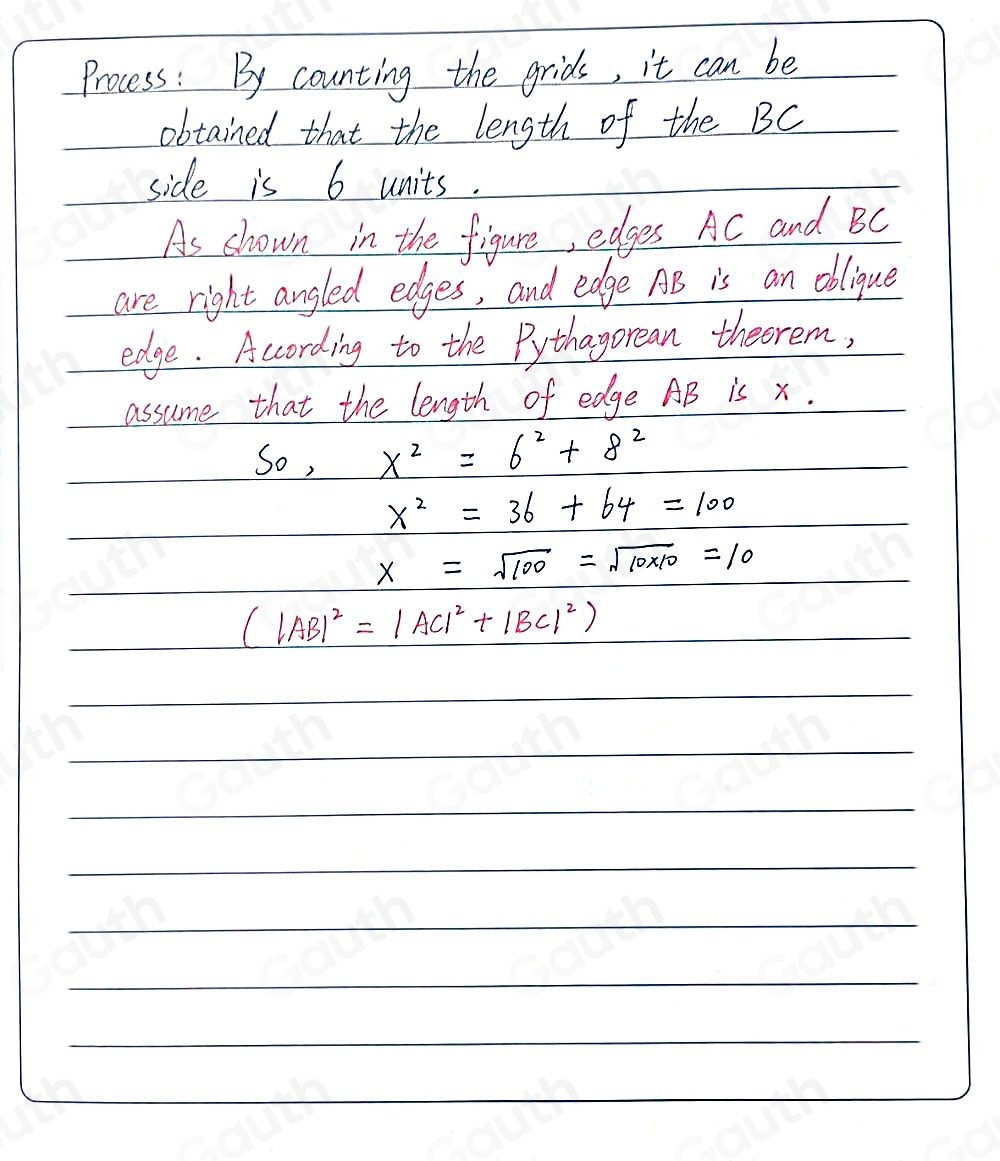 Process: By counting the grids, it can be
obtained that the length of the BC
side is 6 units.
As shown in the figure, edges AC and BC
are right angled edges, and edge AB is an oblique
edge. According to the Pythagorean theorem,
assume that the length of edge AB is x.
So, x² = 6² + 8²
x² = 36 + 64 = 100
x = √100 = √10×10 = 10
(|AB|² = |AC|² + |BC|²)